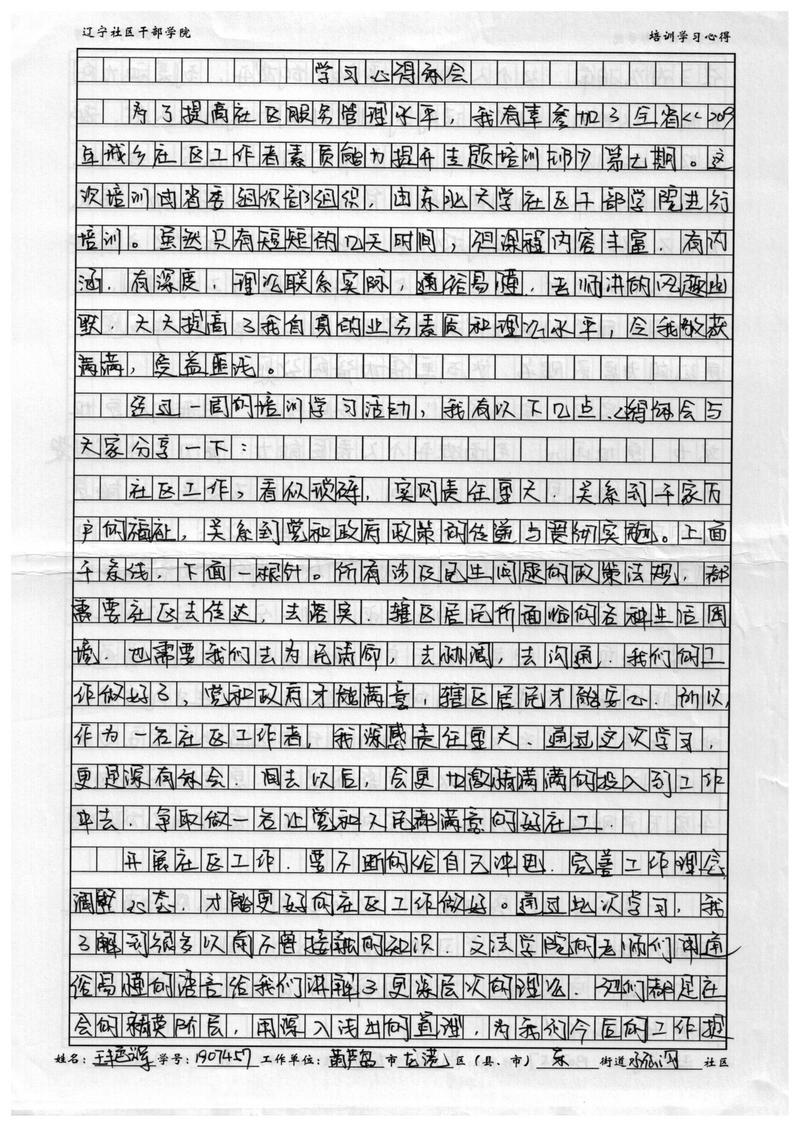 辽宁社区干部学院 培训学习心得
学习心得体会
为了提高社区服务管理水平，我有幸参加了全省<<2019
年城乡社区工作者素质能力提升专题培训班》第七期。这
次培训由省委组织部组织，由东北大学社区干部学院进行
培训。虽然只有短短的几天时间，但课程内容丰富，有内
涵，有深度，理论联系实际，通俗易懂，老师讲的风趣幽
默，大大提高了我自身的业务素质和理论水平，令我收获
满满，受益匪浅。
经过一周的培训学习活动，我有以下几点心得体会与
大家分享一下：
社区工作，看似琐碎，实则责任重大，关系到千家万
户的福祉，关系到党和政府政策的传递与贯彻实施。上面
千条线，下面一根针。所有涉及民生问题的政策法规，都
需要社区去传达，去落实，辖区居民所面临的各种生活困
境，也需要我们去为民请命，去协调，去沟通，我们的工
作做好了，党和政府才能满意，辖区居民才能安心，所以，
作为一名社区工作者，我深感责任重大，通过这次学习，
更是深有体会，回去以后，会更加激情满满的投入到工作
中去，争取做一名让党和人民都满意的好社工。
开展社区工作，要不断的给自己冲电，完善工作理念
调整心态，才能更好的社区工作做好。通过此次学习，我
了解到很多以前不曾接触的知识，文法学院的老师们讲通
俗易懂的语言给我们讲解了更深层次的理论，他们都是社
会的精英阶层，用深入浅出的道理，为我们今后的工作提
姓名： 学号：1907457 工作单位：葫芦岛市龙港区（县、市） 东 街道 社区